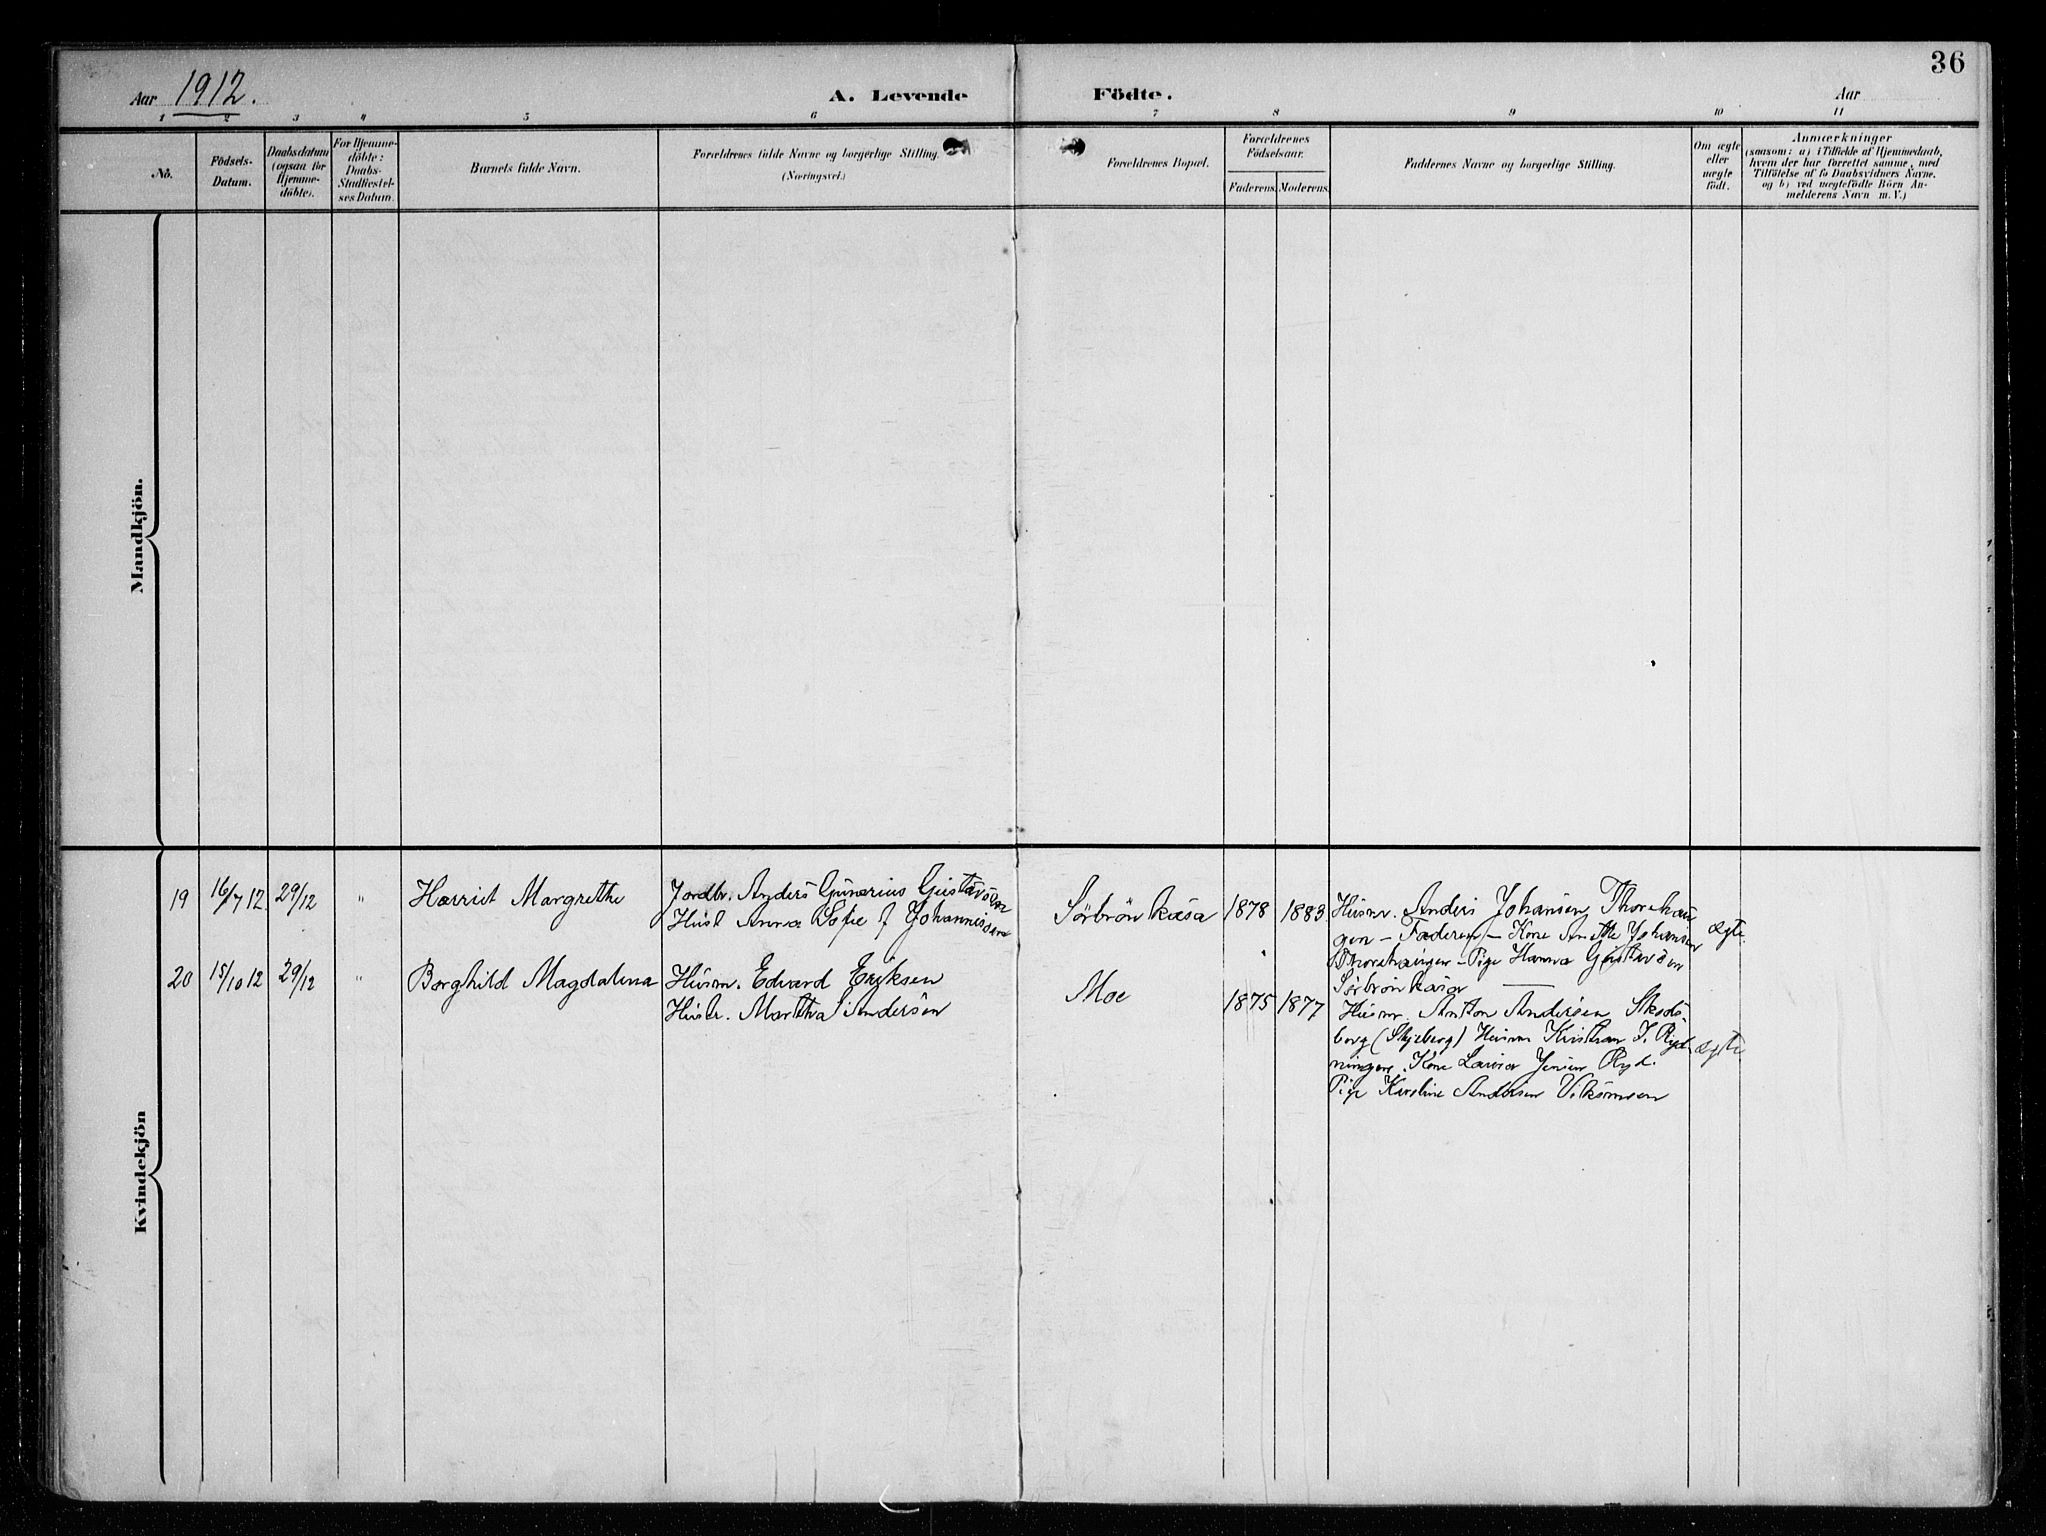 36
Aar 1912.
A. Levende Födte.
Aar
1 2 3 4 5 6 7 8 9 10 11
No.
Födsels-
Datum.
Daabsdatum
(ogsaa for
Hjemme-
döbte).
For Hjemme-
döbte:
Daabs-
Stadfæstel-
ses Datum.
Barnets fulde Navn.
Forældrenes fulde Navne og borgerlige Stilling.
(Næringsvei.)
Forældrenes Bopæl.
Forældrenes
Födselsaar.
Faderens. Moderens.
Faddernes Navne og borgerlige Stilling.
Om ægte
eller
uægte
födt.
Anmærkninger
(saasom: a) i Tilfælde af Hjemmedaab,
hvem der har forrettet samme, med
Tilföielse af to Daabsvidners Navne,
og b) ved uægtefödte Börn An-
melderens Navn m.V.)
Mandkjön.
Kvindekjön
19 16/7 12 29/12 " Harriet Margrethe
Jordbr. Anders Gunerius Gustavsen
Hust Anna Sofie f Johannesdr
Sørbrön kasa 1878 1883
Husm. Anders Johansen Thorshau
gen - Faderen - Kone Anette Johansen
Thorshaugen - Pige Hanna Gustavsen
Sørbrönkasa
ægte.
20 15/10 12 29/12 " Borghild Magdalena
Husm. Edvard Eriksen
Hustr. Marthea Andersen
Moe 1875 1877
Husm. Anton Andersen
borg (Skjeberg) Husm Kristian J. Ryd
ningen. Kone Lovisa Jensen Ryd.
Pige Karoline Andersen
ægte